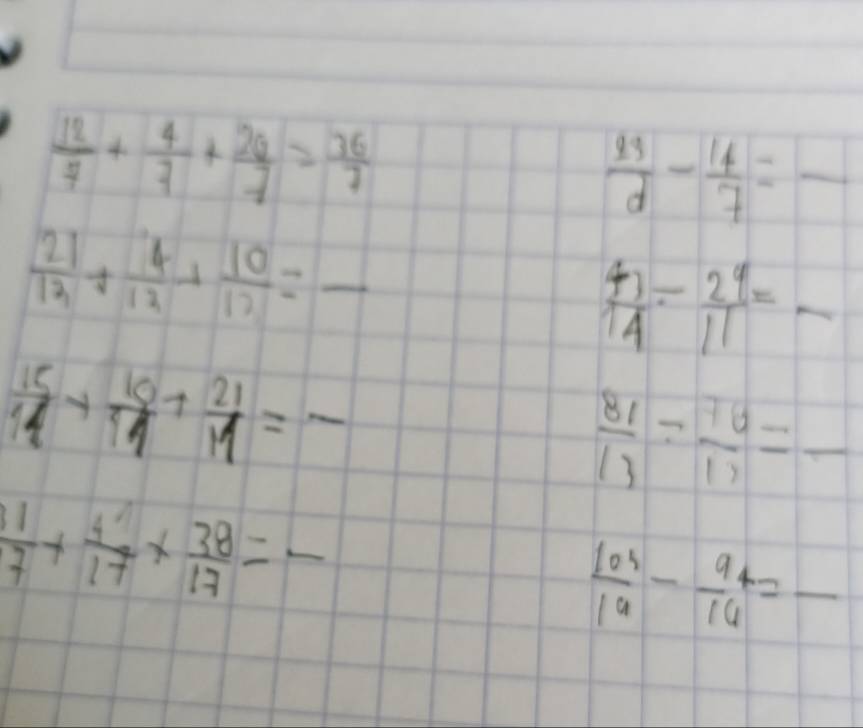 12/7 + 4/7 + 20/7 = 36/7
21/13 + 14/13 + 10/13 = —
15/14 + 10/14 + 21/14 = —
31/17 + /17 + 38/17 = —
23/ - 14/7 = —
43/14 - 29/11 = —
81/13 - 70/13 = —
105/19 - 94/19 = —